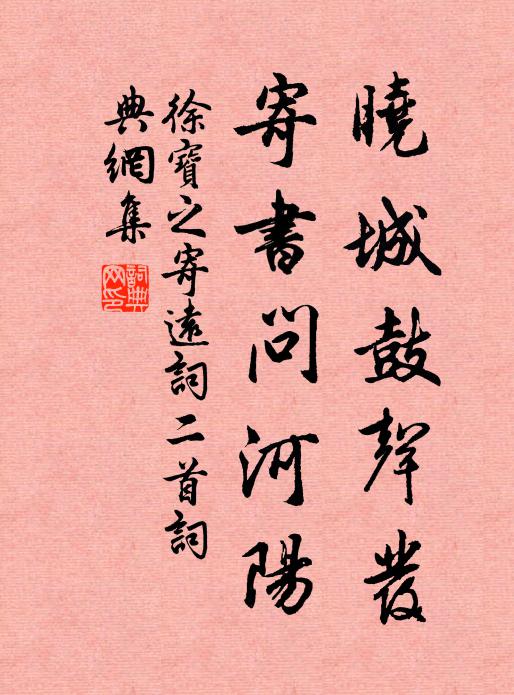 曉城鼓聲發
寄書問河陽
徐寶之寄遠詞二首詞
典網集
詞典網印